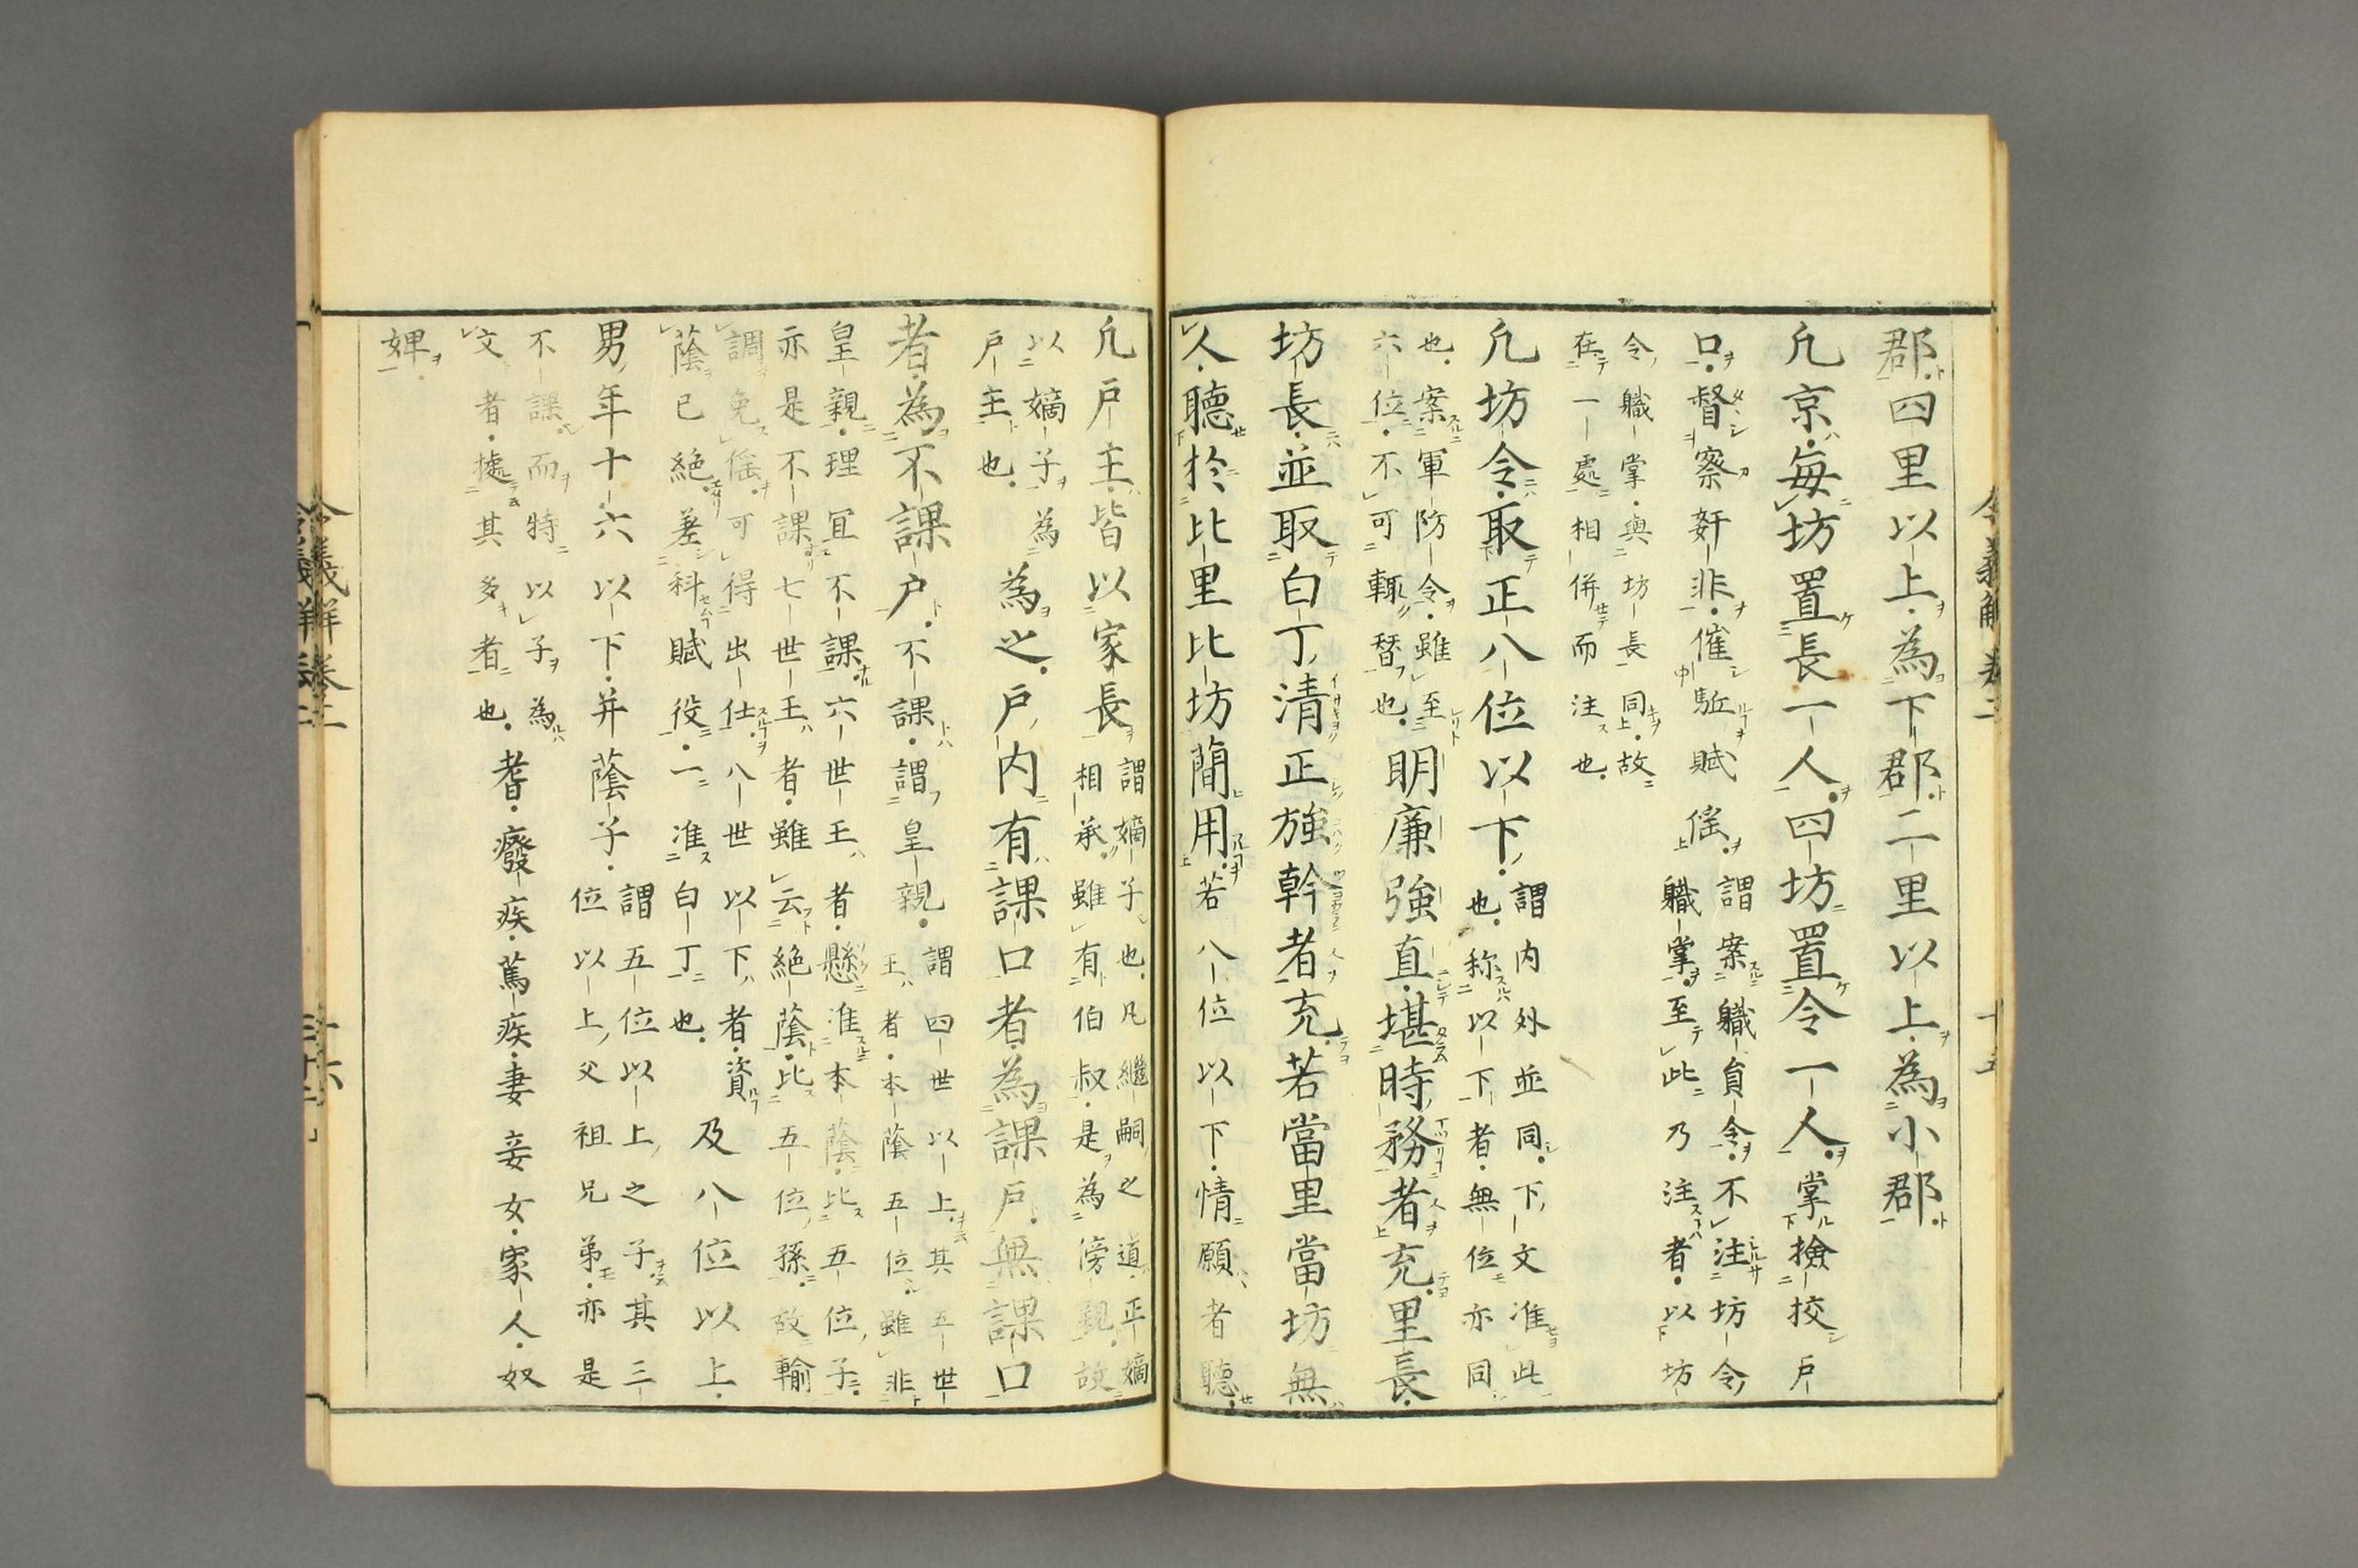 郡四里以上為下郡二里以上為小郡
凢京毎坊置長一人四坊置令一人掌撿挍戸
口督察奸非催駈賦徭
謂案職員令不注坊令
職掌至此乃注者以坊
令職掌與坊長同故
在一處相併而注也
凢坊令取正八位以下
謂内外並同下文准此
也称以下者無位亦同
也案軍防令雖至
六位不可輙替也
明廉強直堪時務者充里長
坊長並取白丁清正強幹者充若當里當坊無
人聽於比里比坊簡用若八位以下情願者聽
凢戸主皆以家長
謂嫡子也凡繼嗣之道正嫡
相承雖有伯叔是為傍親故
以嫡子為
戸主也
為之戸内有課口者為課戸無課口
者為不課戸不課謂皇親
謂四世以上其五世
王者本蔭五位雖非
皇親理冝不課六世王者懸准本蔭比五位子
亦是不課七世王者雖云絶蔭比五位孫故輸
調免徭可得出仕八世以下者資
蔭已絶差科賦役一准白丁也
及八位以上
男年十六以下并蔭子
謂五位以上之子其三
位以上父祖兄弟亦是
不課而特以子為
文者據其多者也
耆癈疾篤疾妻妾女家人奴
婢